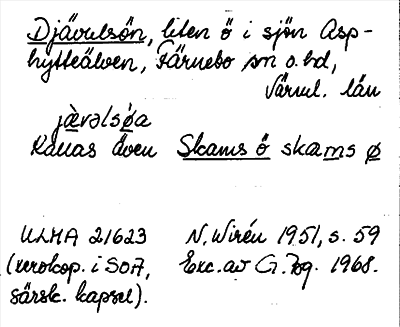 Djävulsön, liten ö i sjön Asp-
hytteälven, Färnebo sn o. hd,
Värml. län
jä̀vəlsø̀a
Kallas även Skams ö skams ø
ULMA 21623 N. Wirén 1951, s. 59
(xerokop. i SOA, Exc. av G. Bg. 1968.
särsk. kapsel).